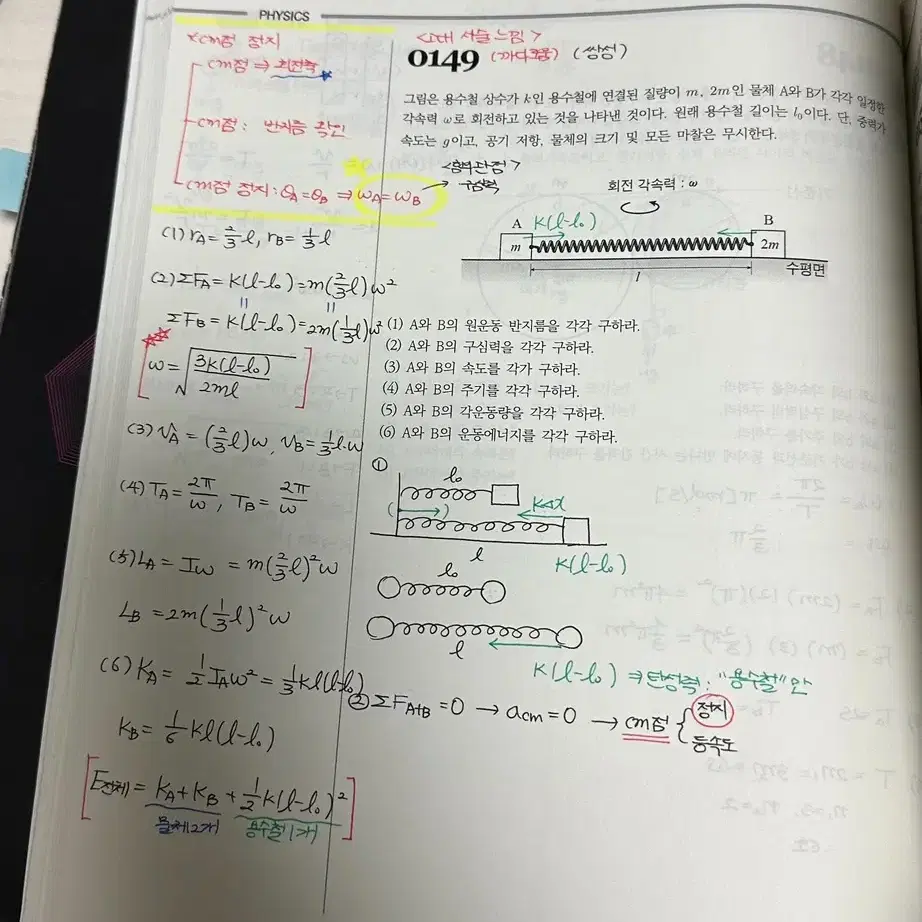 PHYSICS
*cm점 정지
cm점 ⇒ 회전축
cm점: 반지름 확인
cm점 정지: θA=θB ⇒ ωA=ωB
(1) rA=2/3 l, rB=1/3 l
(2) ΣFA=K(l-l₀)=m(2/3 l)ω²
ΣFB=K(l-l₀)=2m(1/3 l)ω²
ω=√(3K(l-l₀)/2ml)
(3) VA=(2/3 l)ω, VB=1/3 l·ω
(4) TA=2π/ω, TB=2π/ω
(5) LA=Iω=m(2/3 l)²ω
LB=2m(1/3 l)²ω
(6) KA=1/2 IAω²=1/3 Kl(l-l₀)
KB=1/6 Kl(l-l₀)
E전체=KA+KB+1/2 K(l-l₀)²
물체 2개 용수철 1개
0149 (쌍성)
그림은 용수철 상수가 k인 용수철에 연결된 질량이 m, 2m인 물체 A와 B가 각각 일정한
각속력 ω로 회전하고 있는 것을 나타낸 것이다. 원래 용수철 길이는 l₀이다. 단, 중력가
속도는 g이고, 공기 저항, 물체의 크기 및 모든 마찰은 무시한다.
구심력
회전 각속력 : ω
A K(l-l₀) B
m 2m
l 수평면
(1) A와 B의 원운동 반지름을 각각 구하라.
(2) A와 B의 구심력을 각각 구하라.
(3) A와 B의 속도를 각가 구하라.
(4) A와 B의 주기를 각각 구하라.
(5) A와 B의 각운동량을 각각 구하라.
(6) A와 B의 운동에너지를 각각 구하라.
①
l₀
KΔx
l K(l-l₀)
l₀
l
K(l-l₀) ⇒ 탄성력: "용수철"만
② ΣFA+B=0 → acm=0 → cm점 { 정지
등속도